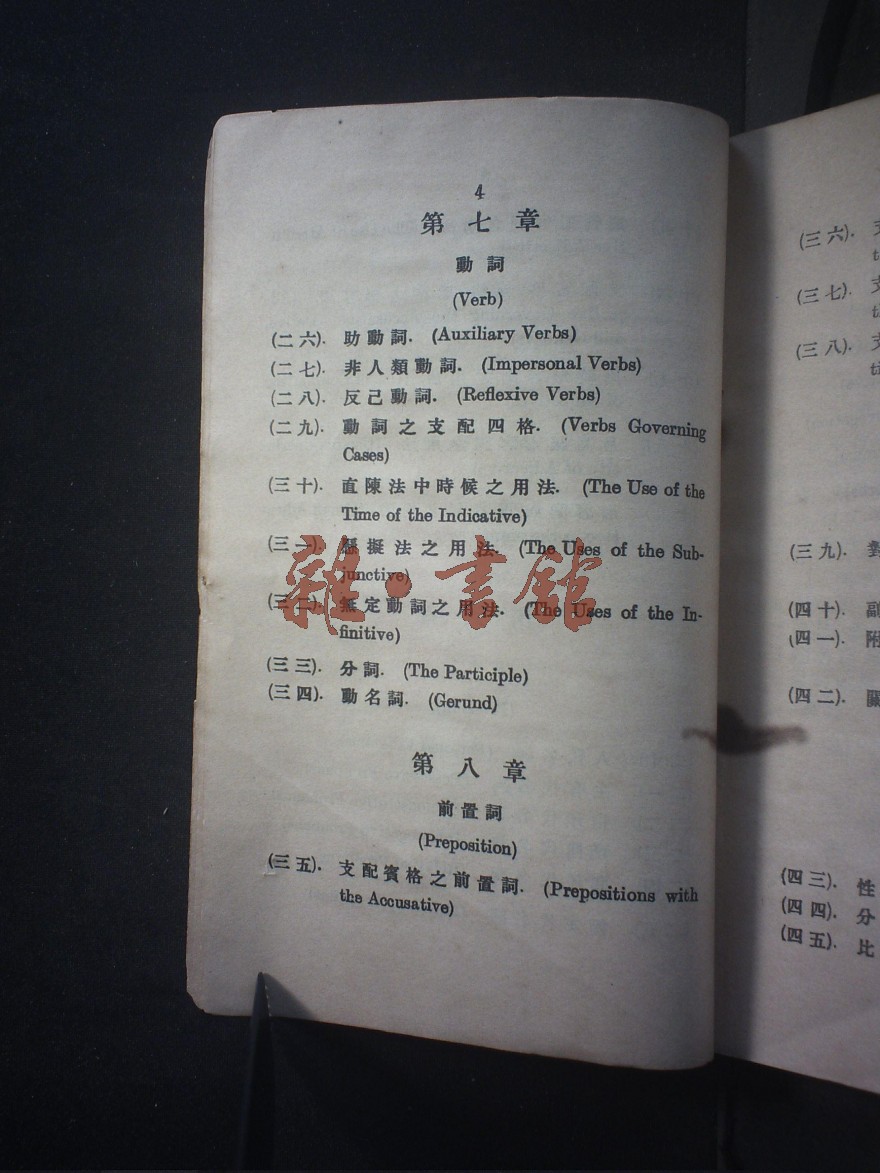 4
第七章
動詞
(Verb)
(二六). 助動詞. (Auxiliary Verbs)
(二七). 非人類動詞. (Impersonal Verbs)
(二八). 反己動詞. (Reflexive Verbs)
(二九). 動詞之支配四格. (Verbs Governing
Cases)
(三十). 直陳法中時候之用法. (The Use of the
Time of the Indicative)
(三一). 擬法之用法. (The Uses of the Sub-
junctive)
(三二). 無定動詞之用法. (The Uses of the In-
finitive)
(三三). 分詞. (The Participle)
(三四). 動名詞. (Gerund)
第八章
前置詞
(Preposition)
(三五). 支配賓格之前置詞. (Prepositions with
the Accusative)
雜·書館
(三六). 支
(三七). 支
(三八). 支
ti
(三九). 對
(四十). 副
(四一). 附
(四二). 關
(四三). 性
(四四). 分
(四五). 比